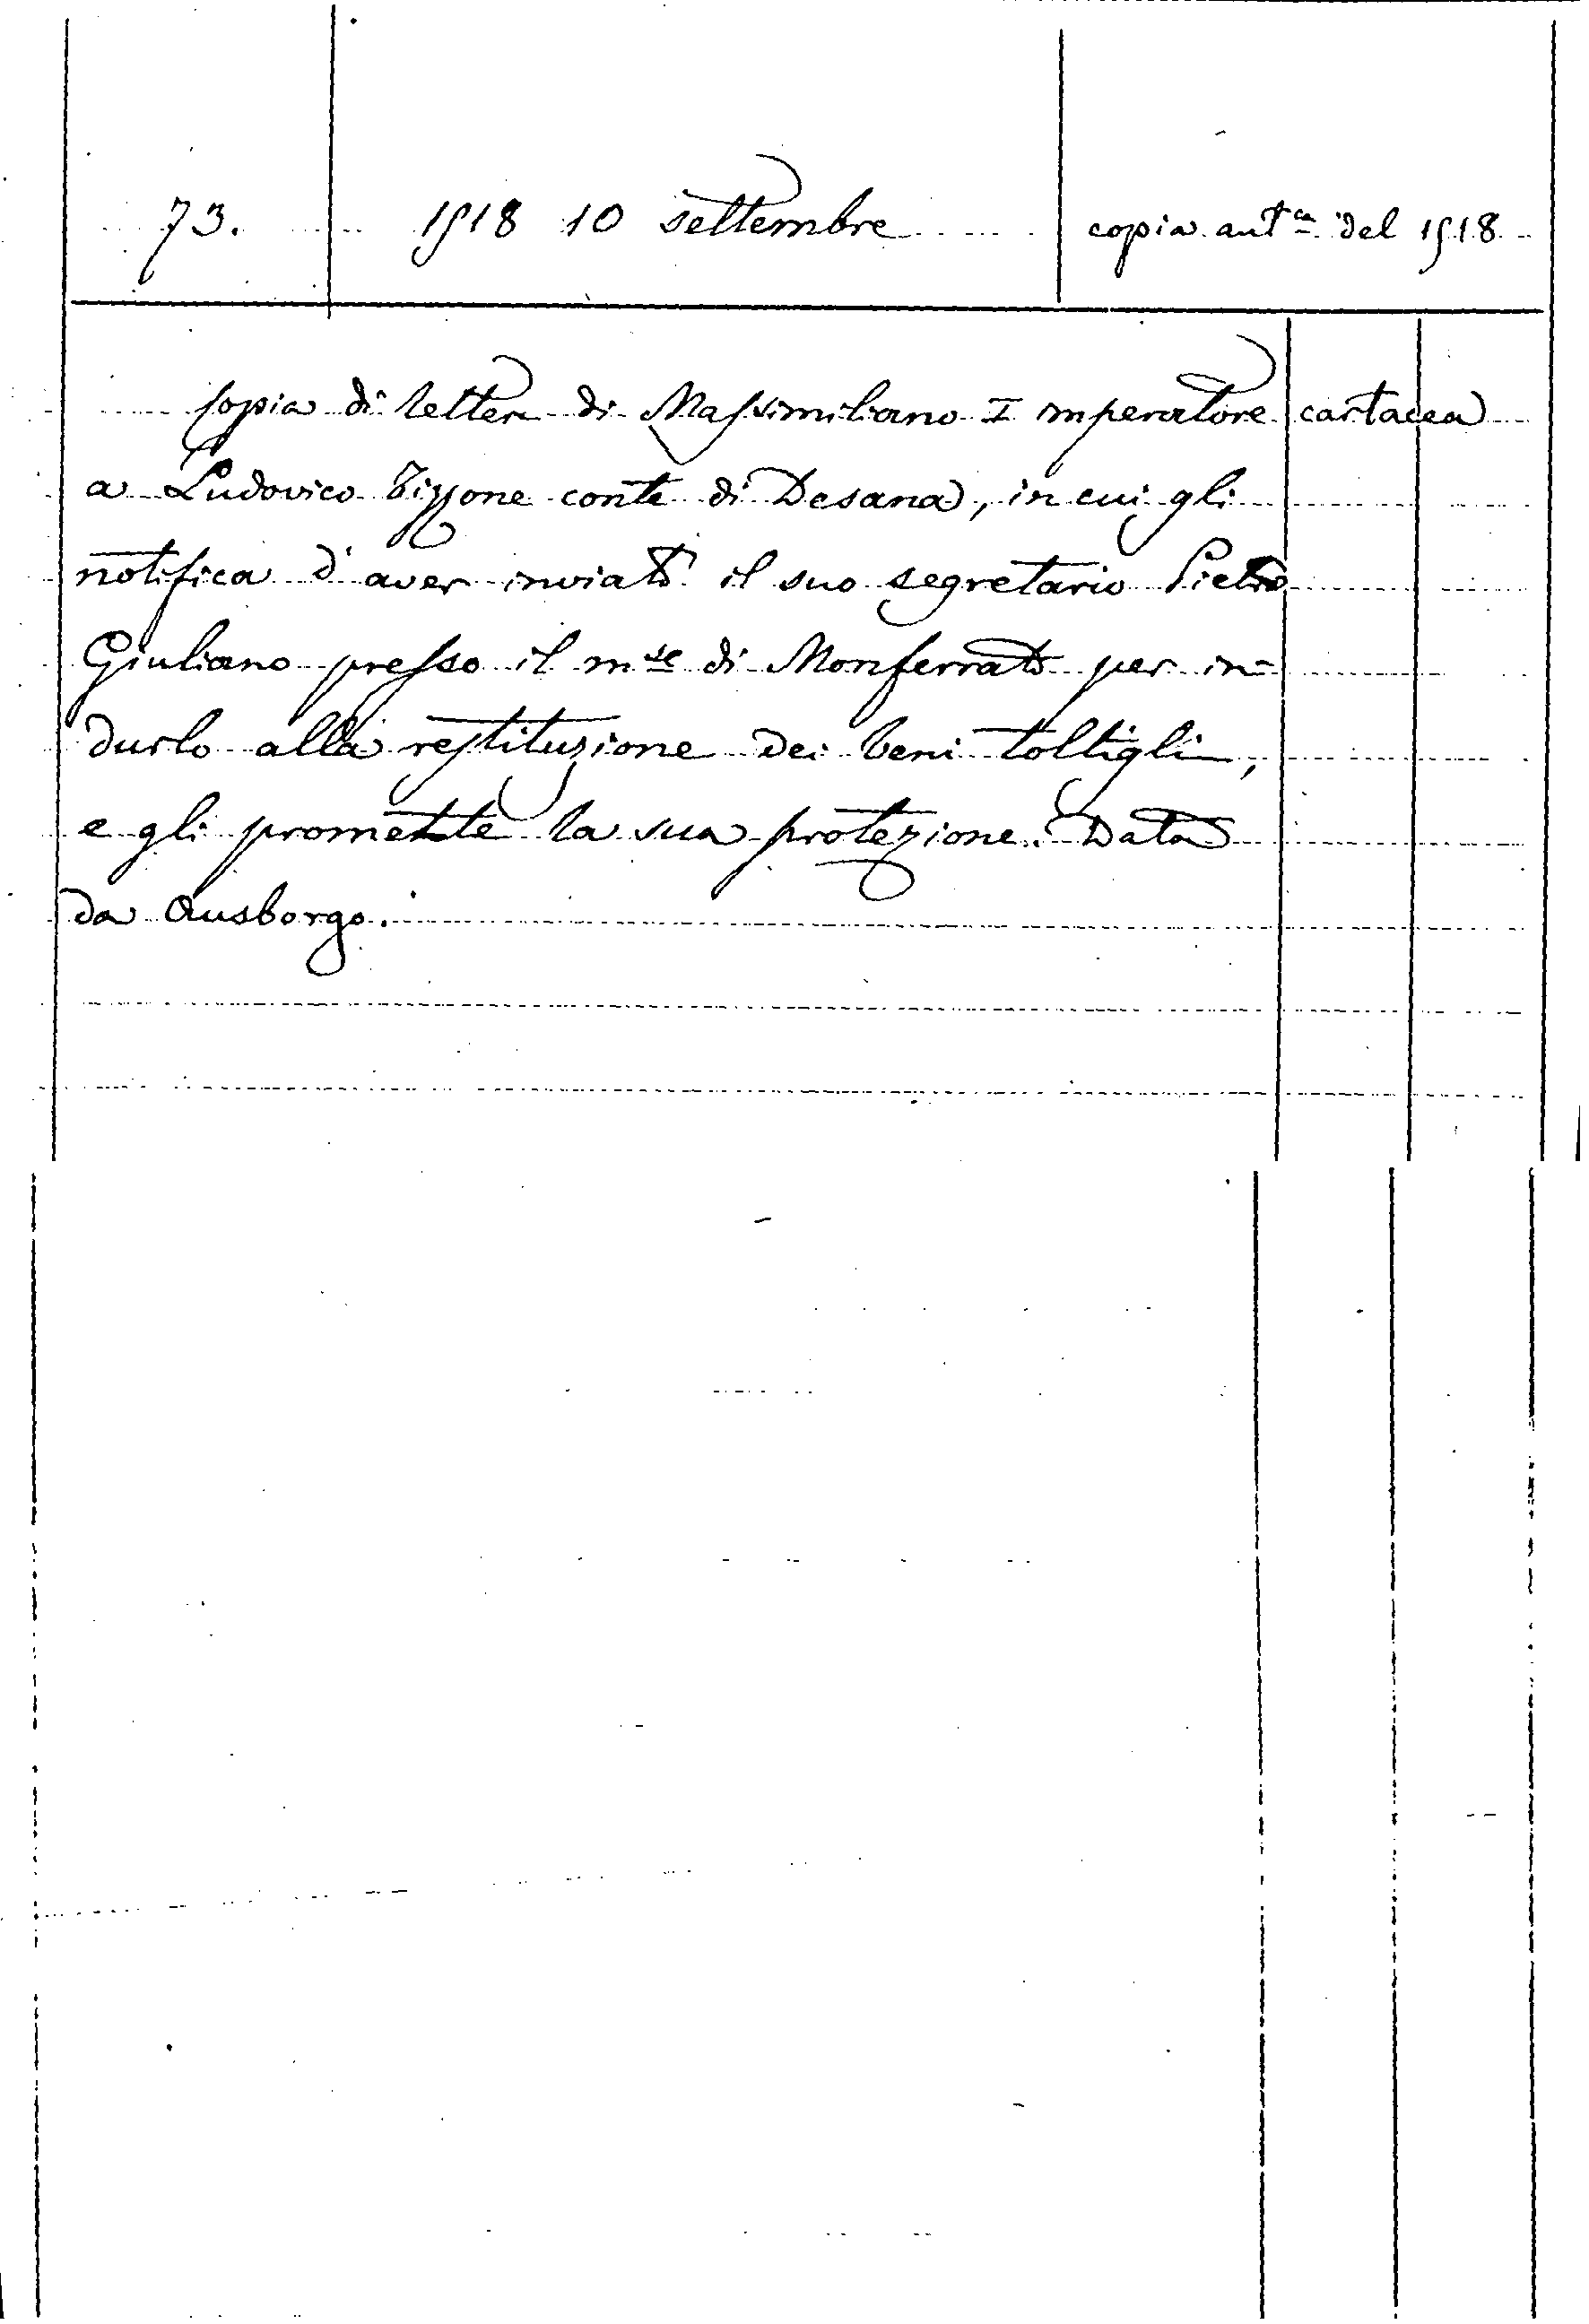 73. 1518 10 settembre copia aut.ca del 1518
Copia di lettera di Massimiliano I imperatore cartacea
a Ludovico Tizzone conte di Desana, in cui gli
notifica d'aver inviato il suo segretario Pietro
Giuliano presso il m.se di Monferrato per in-
durlo alla restituzione dei beni toltigli,
e gli promette la sua protezione. Data
da Ausborgo.